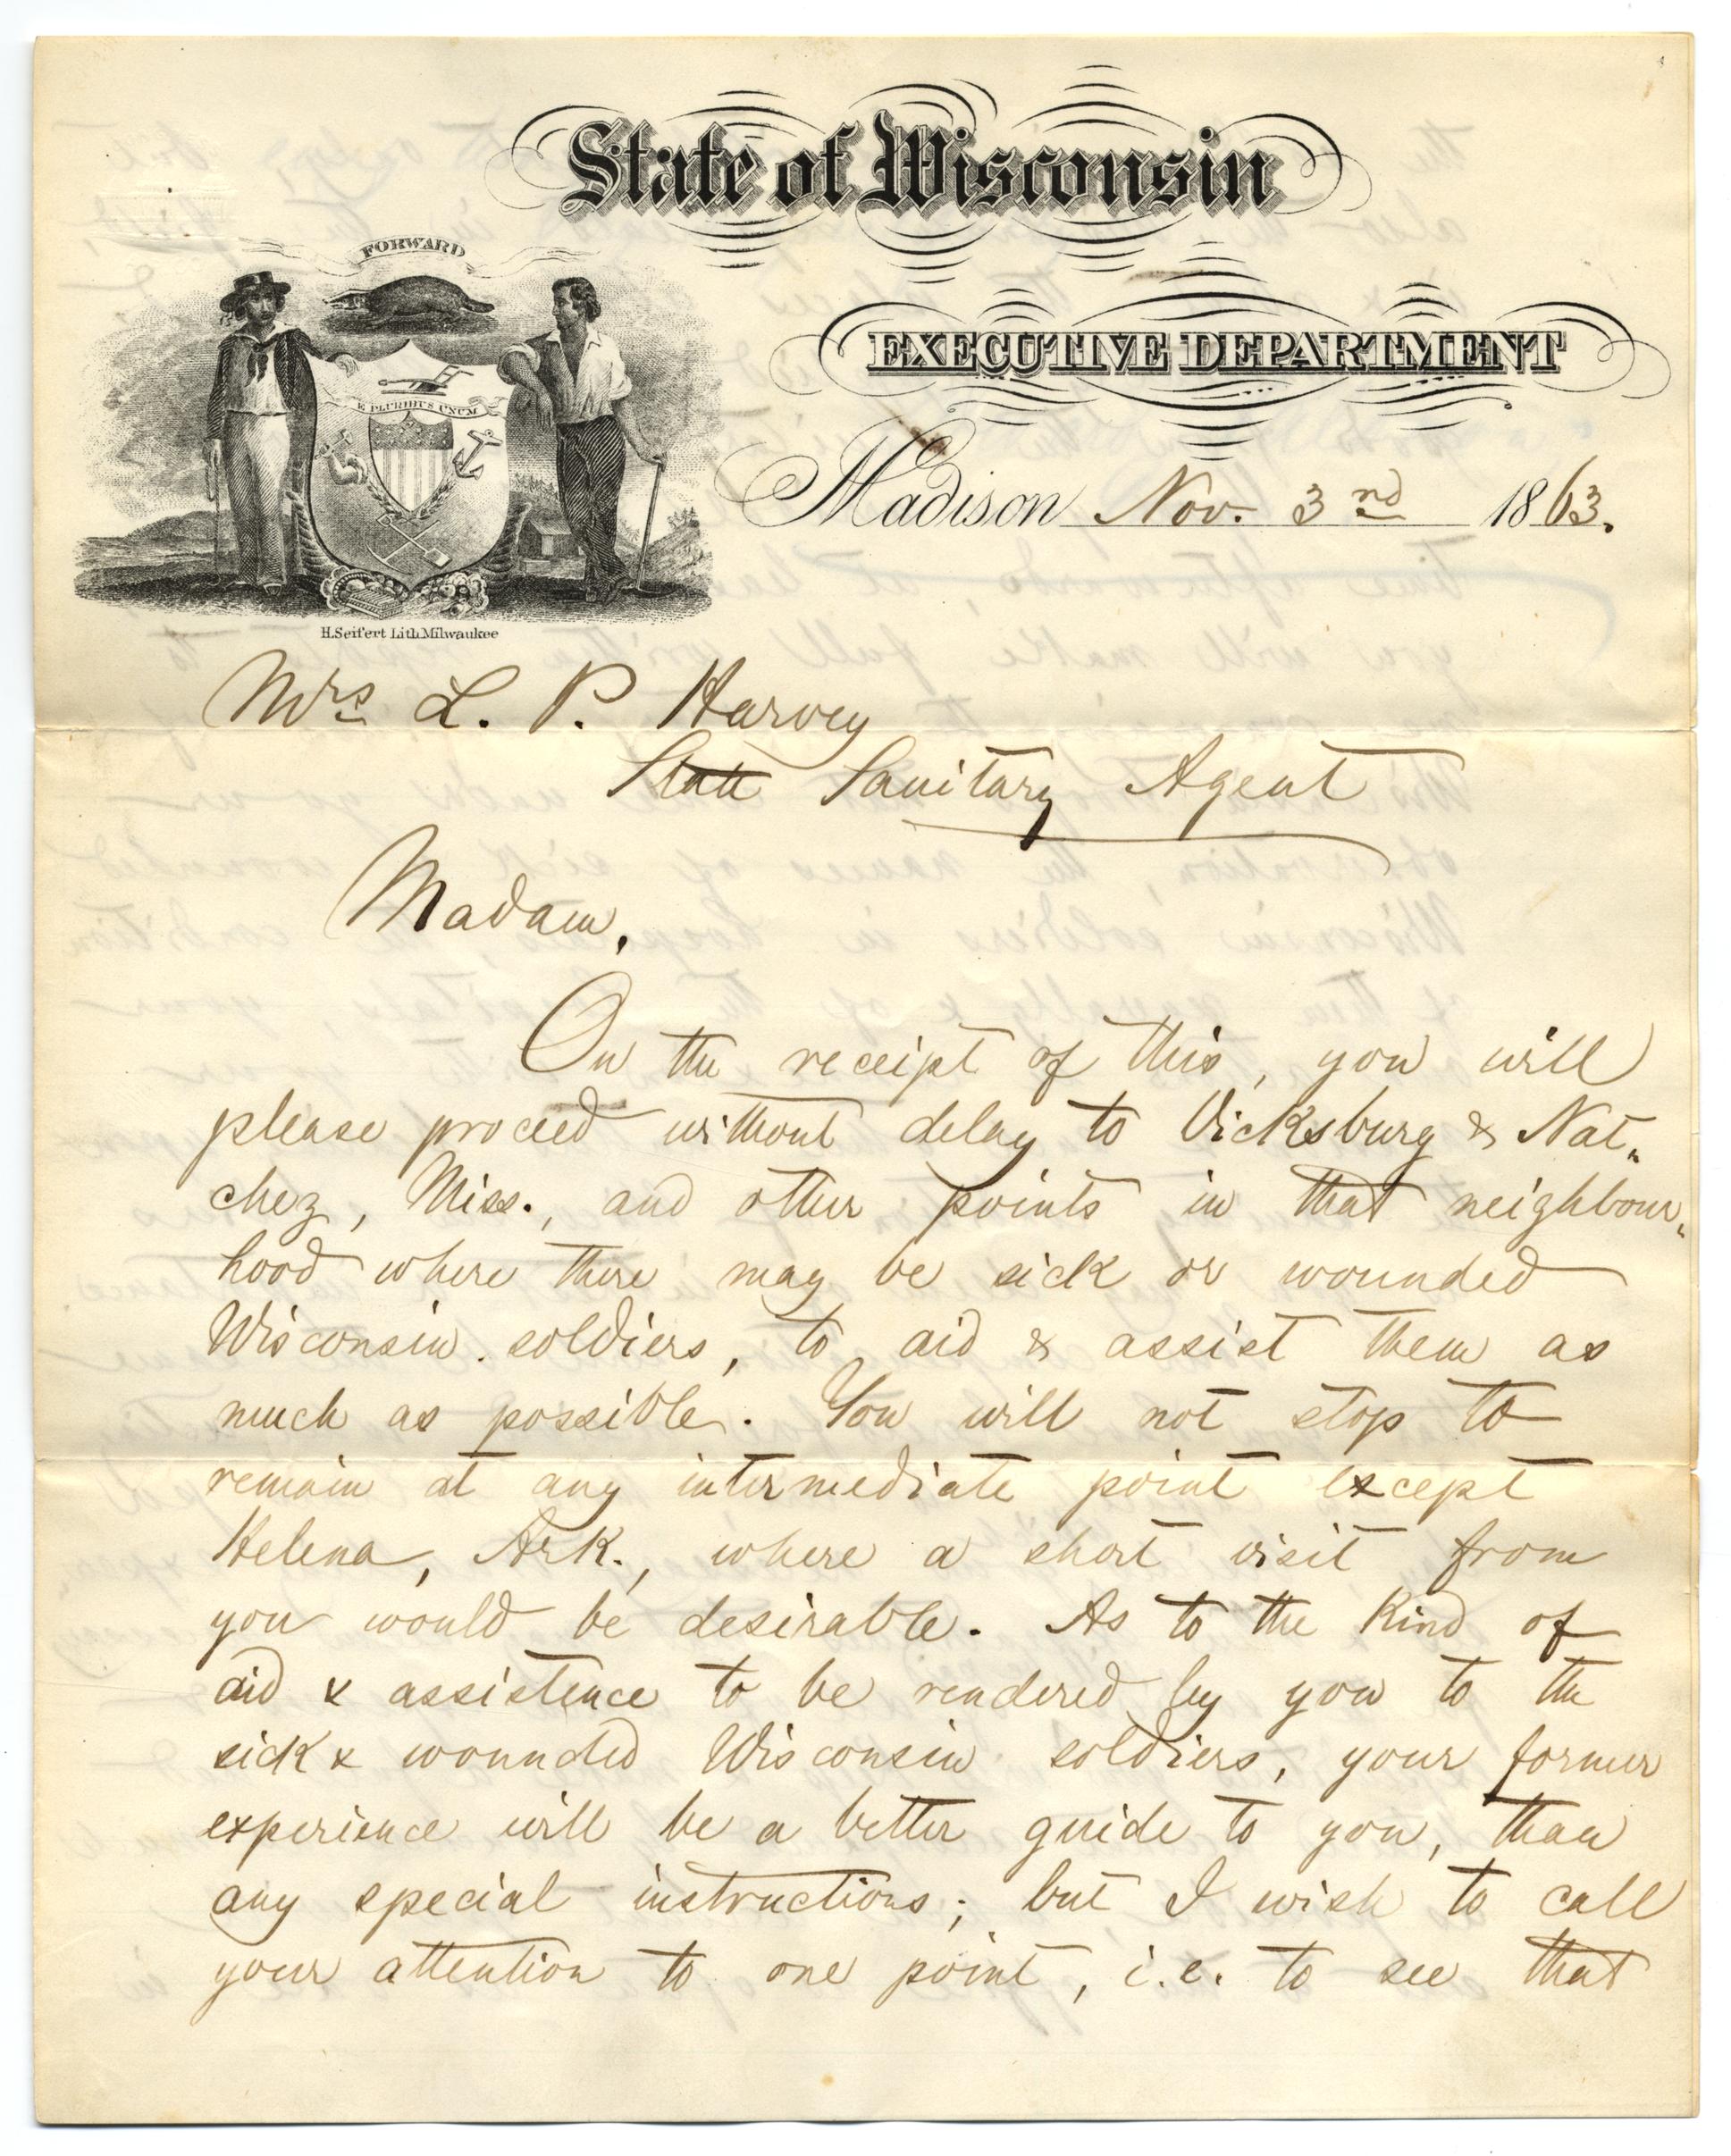 State of Wisconsin
FORWARD
EXECUTIVE DEPARTMENT
E PLURIBUS UNUM
Madison Nov. 3rd 1863.
H. Seifert Lith. Milwaukee
Mrs L. P. Harvey
State Sanitary Agent
Madam,
On the receipt of this, you will
please proceed without delay to Vicksburg & Nat„
chez, Miss., and other points in that neighbour„
hood where there may be sick or wounded
Wisconsin soldiers, to aid & assist them as
much as possible. You will not stop to
remain at any intermediate point except
Helena, Ark., where a short visit from
you would be desirable. As to the kind of
aid & assistence to be rendered by you to the
sick & wounded Wisconsin soldiers, your former
experience will be a better guide to you, than
any special instructions; but I wish to call
your attention to one point, i.e. to see that